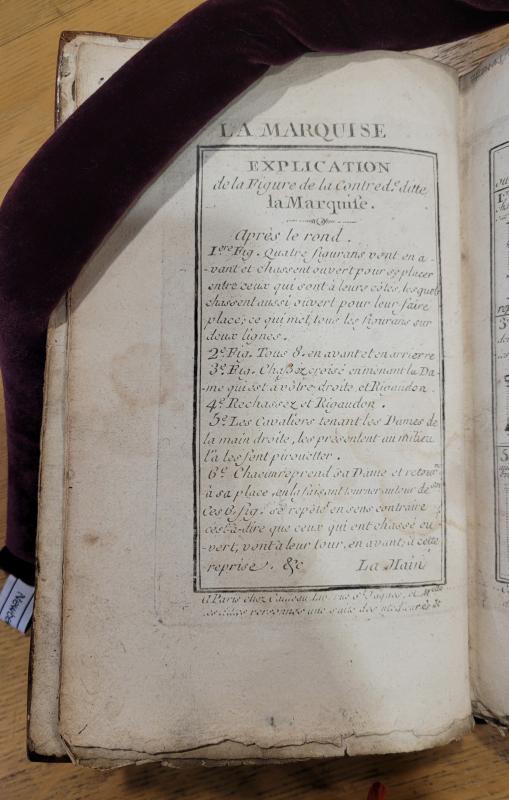 LA MARQUISE
EXPLICATION
de la Figure de la Contred.e ditte
la Marquise.
Après le rond.
1.ere Fig. Quatre figurans vont en a-
-vant et chassent ouvert pour se placer
entre ceux qui sont à leurs côtés, lesquels
chassent aussi ouvert pour leur faire
place; ce qui met tous les figurans sur
deux lignes.
2.e Fig. Tous 8. en avant et en arrierre
3.e Fig. Chassez croisé en menant la Da-
-me qui est à vôtre droite et Rigaudon.
4.e Rechassez et Rigaudon.
5.e Les Cavaliers tenant les Dames de
la main droite, les présentent au milieu
l'a les font pirouetter.
6.e Chacun reprend sa Dame et retourn
à sa place en la faisant tourner autour de
Ces 6. fig. se repète en sens contraire
c'est-à-dire que ceux qui ont chassé ou-
-vert, vont à leur tour, en avant, à cette
reprise. &c La Main
A Paris chez rue S.t Jaques, et
personnes une suite des
Newbe